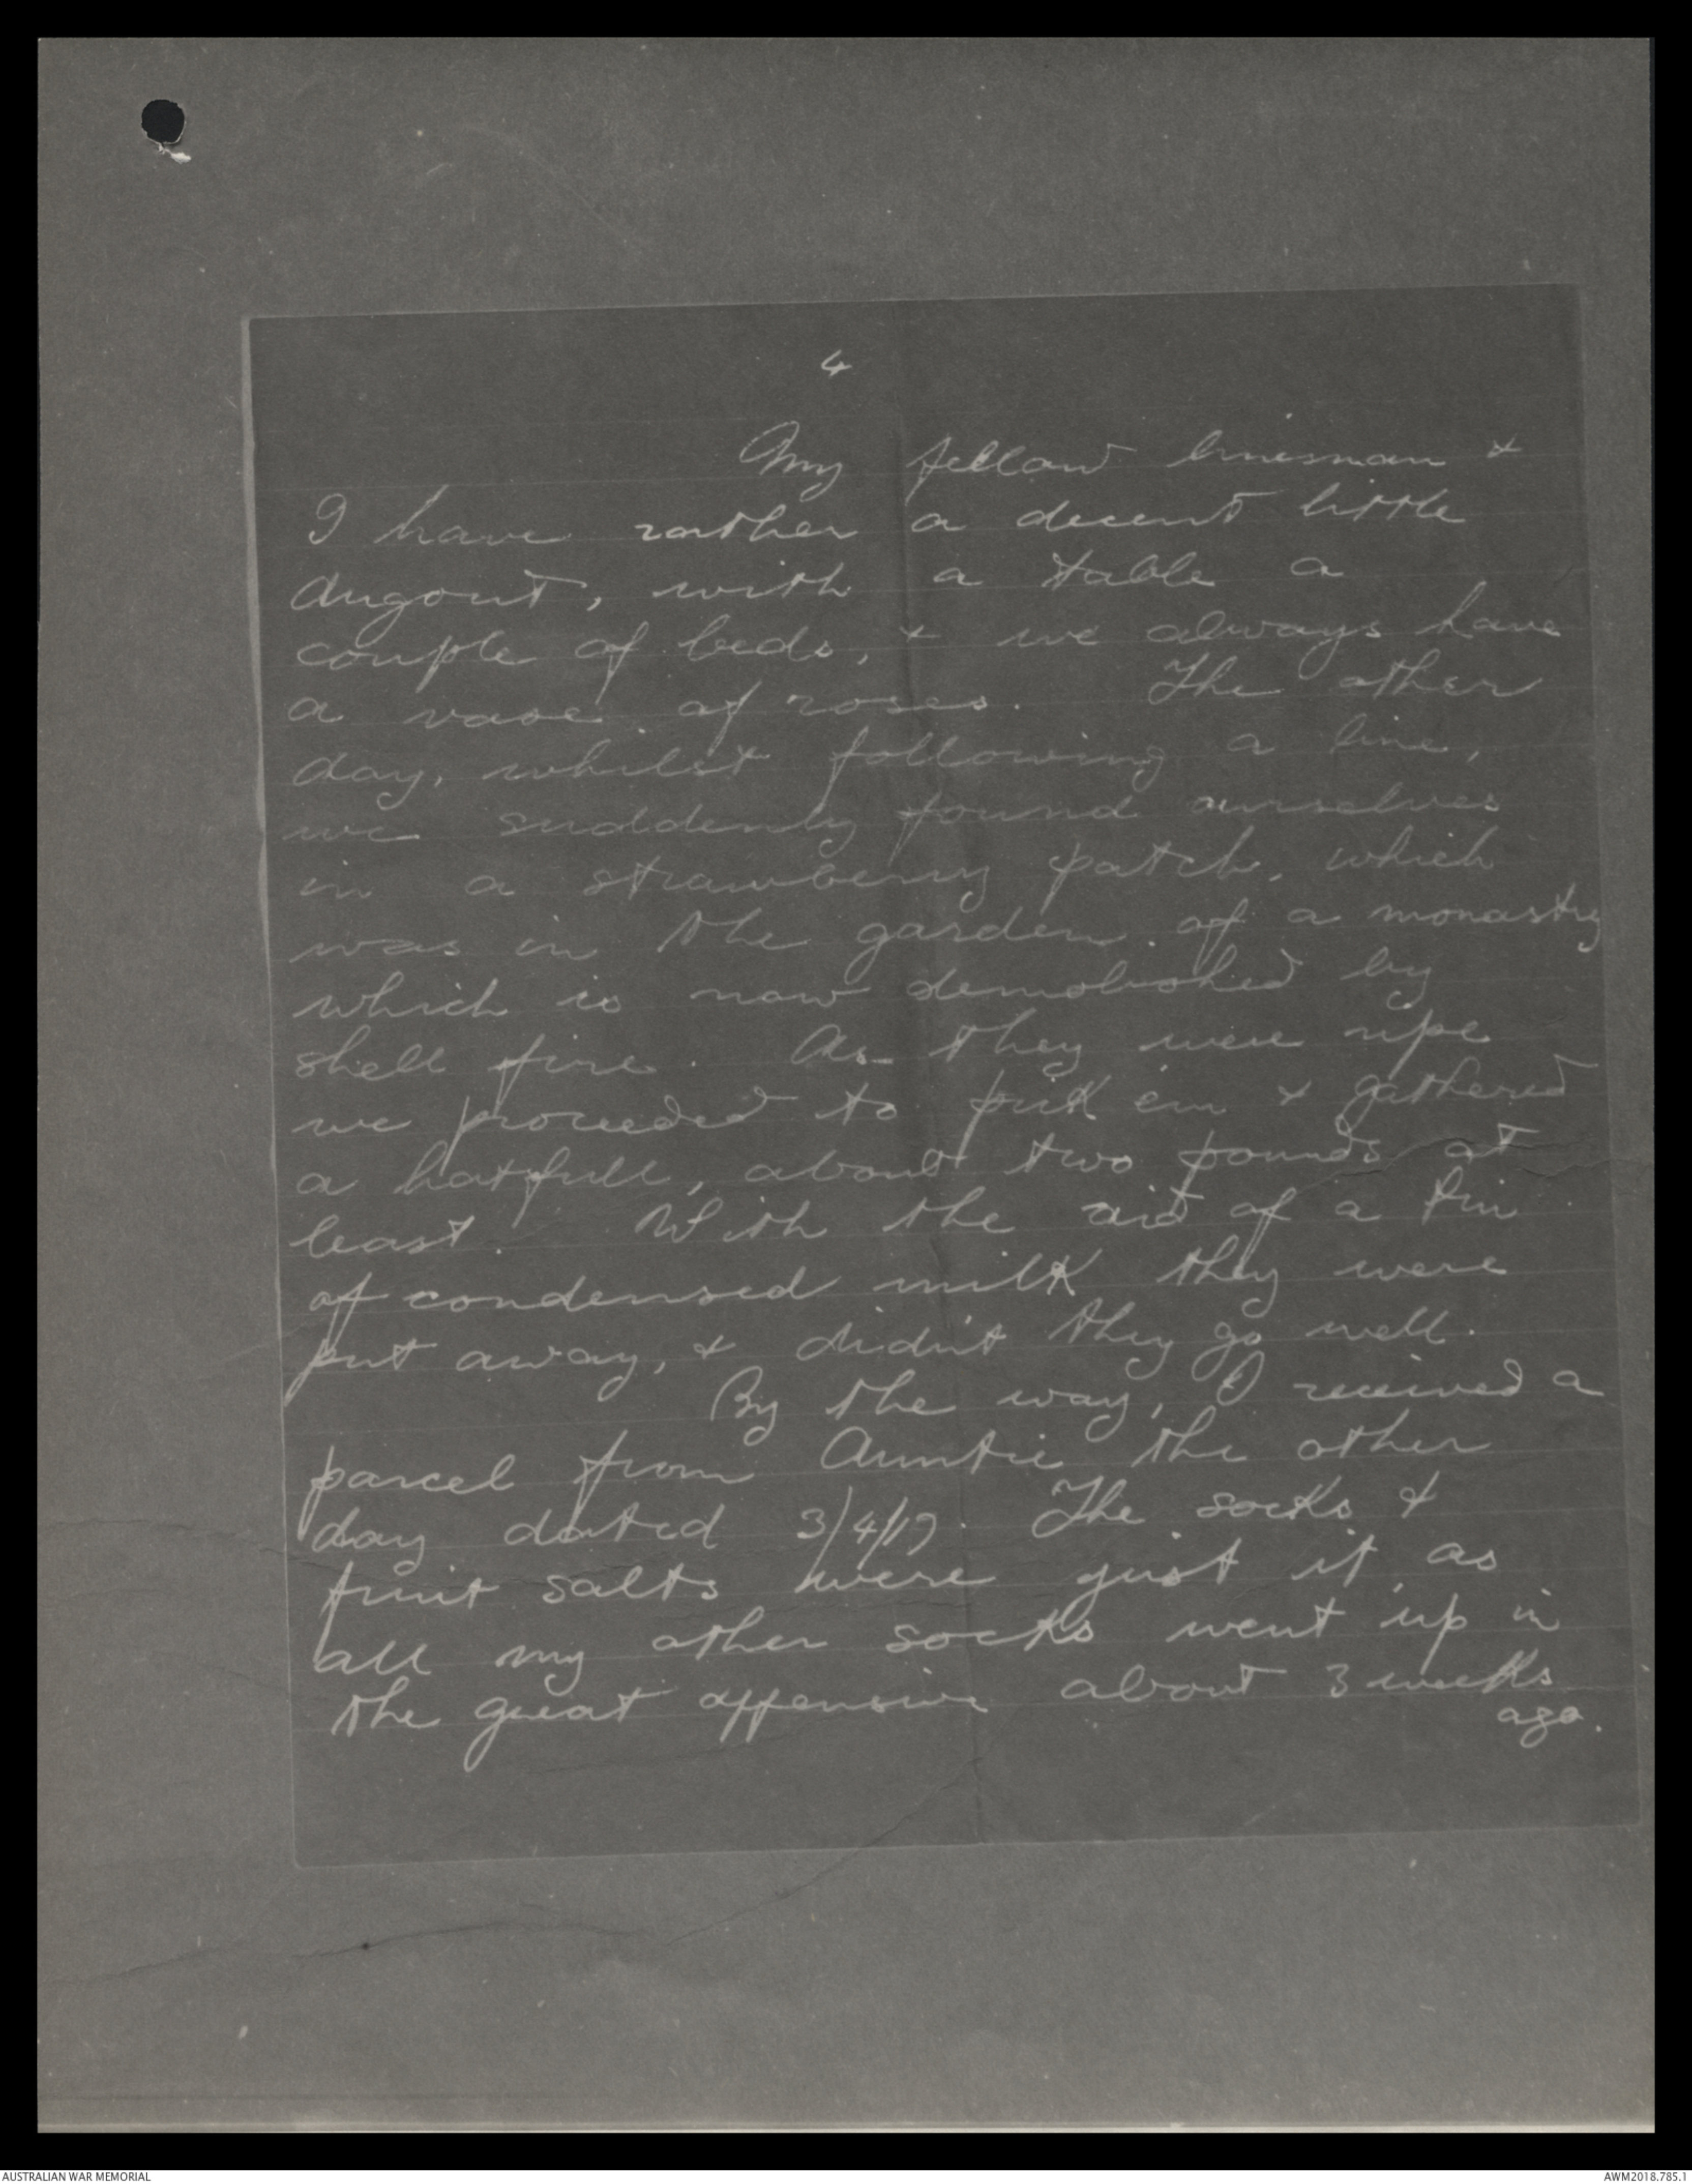 4
My fellow linesman &
I have rather a decent little
dugout, with a table a
couple of beds, & we always have
a vase of roses. The other
day, whilst following a line,
we suddenly found ourselves
in a strawberry patch, which
was in the garden of a monastry
which is now demolished by
shell fire. As they were ripe
we proceeded to pick em & gathered
a hatfull, about two pounds at
least. With the aid of a tin
of condensed milk they were
put away, & didn't they go well.
By the way, I received a
parcel from Auntie the other
day dated 3/4/17. The socks &
fruit salts were just it, as
all my other socks went up in
the great offensive about 3 weeks
ago.
AUSTRALIAN WAR MEMORIAL
AWM2018.785.1